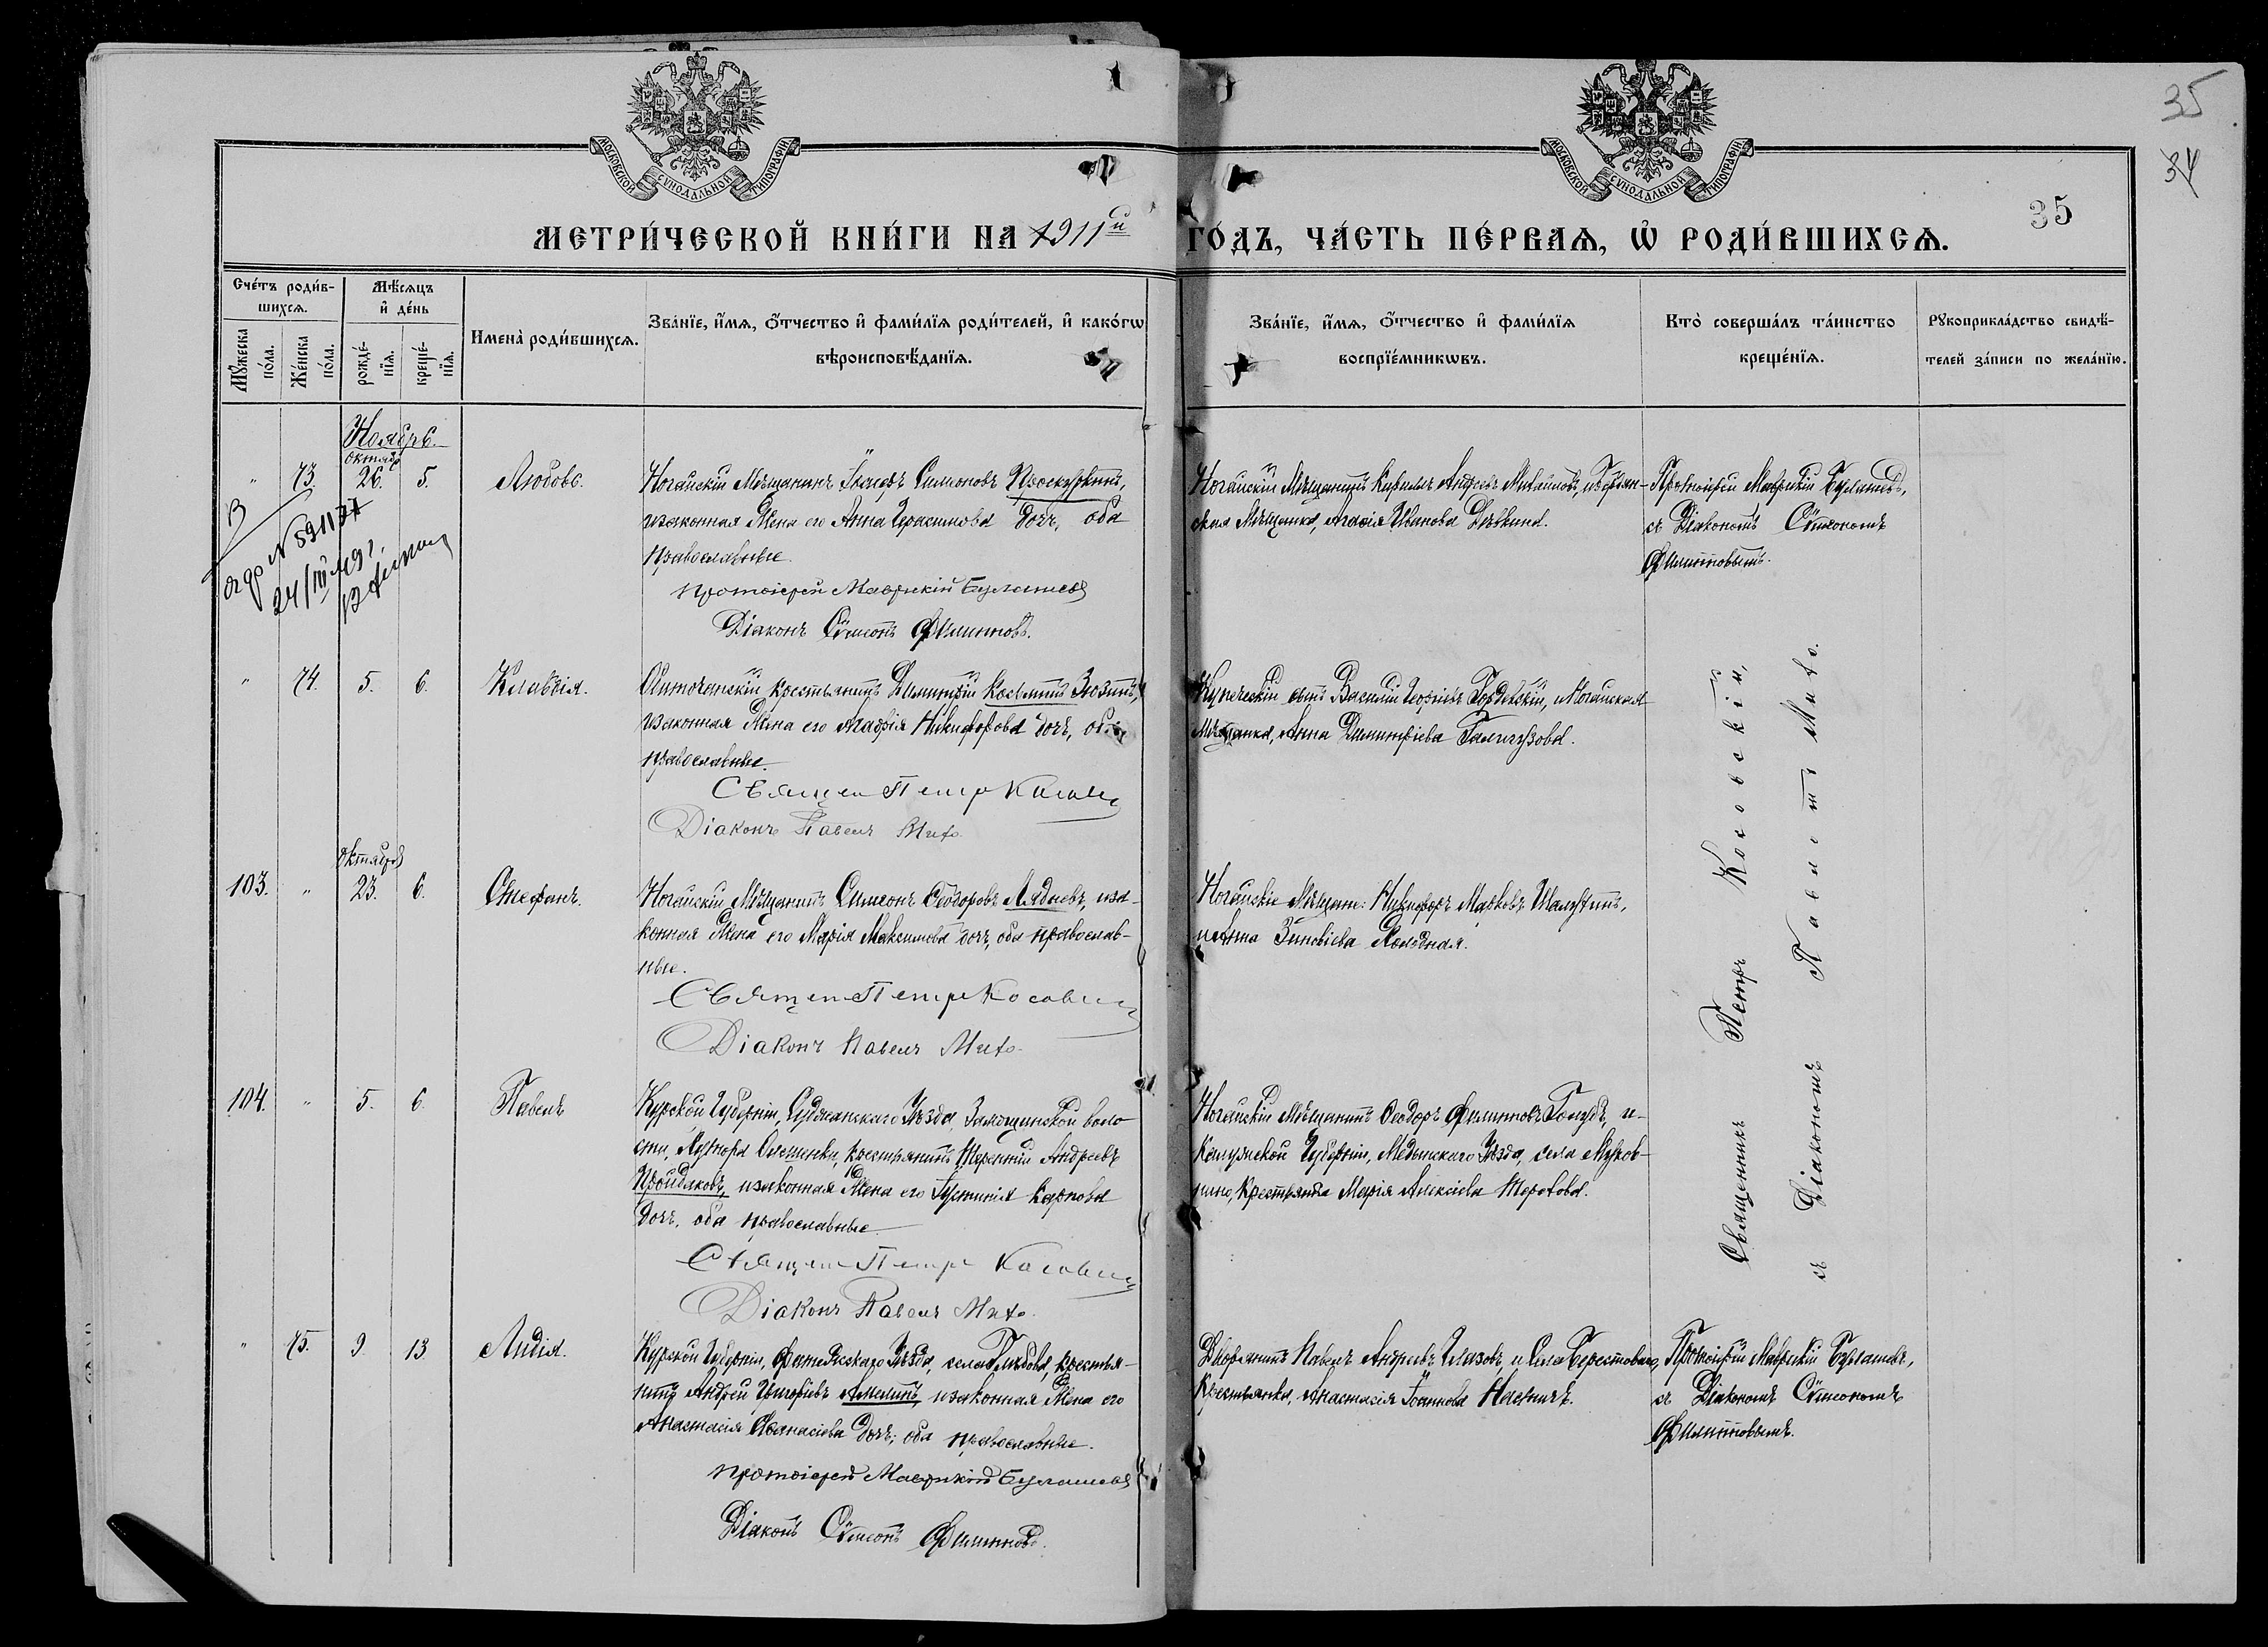 35
34
35
МОСКОВСКОЙ СѴНОДАЛЬНОЙ ТИПОГРАФІИ
МОСКОВСКОЙ СѴНОДАЛЬНОЙ ТИПОГРАФІИ
МЕТРИ́ЧЕСКОЙ КНИ́ГИ НА 1911й ГО́ДЪ, ЧА́СТЬ ПЕ́РВАѦ, Ѡ҆ РОДИ́ВШИХСѦ.
Сче́тъ роди́в-
шихсѧ.
Мꙋ́жеска по́ла.
Же́нска по́ла.
Мѣ́сѧцъ
и҆ де́нь
рожде́-
нїѧ.
креще́-
нїѧ.
И҆мена̀ роди́вшихсѧ.
Зва́нїе, и҆́мѧ, ѻ҆́тчество и҆ фами́лїѧ роди́телей, и҆ како́гѡ
вѣроисповѣ́данїѧ.
Зва́нїе, и҆́мѧ, ѻ҆́тчество и҆ фами́лїѧ
воспрїе́мникѡвъ.
Кто̀ соверша́лъ та́инство
креще́нїѧ.
Рꙋкоприкла́дство свидѣ́-
телей за́писи по жела́нїю.
Ноябрь.
октября
" 73. 26. 5. Любовь.
Ногайскій Мѣщанинъ Іосифъ Симоновъ Проскурнинъ,
изаконная Жена его Анна Герасимова дочь, оба
православные.
протоіерей Маврикій Булашевъ
Діаконъ Сѵмеонъ Филипповъ.
Ногайскій Мѣщанинъ Кириллъ Андреевъ Михайловъ, и
ская Мѣщанка, Агафія Иванова
Протоіерей Маврикій Булашевъ,
съ Діакономъ Сѵмеономъ
Филипповымъ.
" 74. 5. 6. Клавдія.
крестьянинъ Димитрій Косьминъ Зюзинъ,
изаконная Жена его Агафія Никифорова дочь, оба
православные.
Священ Петръ Косовскій
Діаконъ Павелъ Михо
Купеческій сынъ Василій Георгіевъ Гордевскій, иНогайская
Мѣщанка, Анна Димитріева Галагузова.
Священникъ Петръ Косовскій,
съ Діакономъ Павломъ Михо.
октября
103. " 23. 6. Стефанъ.
Ногайскій Мѣщанинъ Симеонъ Ѳеодоровъ Лядневъ, иза-
конная Жена его Марія Максимова дочь, оба православ-
ные.
Священ Петръ Косовскій
Діаконъ Павелъ Михо.
Ногайскіе Мѣщане: Никифоръ Марковъ Шалунинъ,
иАнна Зиновіева Колодная.
104. " 5. 6. Павелъ
Курской Губерніи, Суджанскаго Уѣзда, Замостянской воло
сти, Хутора Олешенки, крестьянинъ Терентій Андреевъ
Пройдаковъ, изаконная Жена его Іустинія Карпова
дочь, оба православные.
Священ Петръ Косовскій
Діаконъ Павелъ Михо.
Ногайскій Мѣщанинъ Ѳеодоръ Филипповъ Голубъ, и-
Калужской Губерніи, Медынскаго Уѣзда, села
крестьянка Марія Алексіева Терехова.
" 75. 9. 13. Лидія.
Курской Губерніи, Фатежскаго Уѣзда, села Глѣбова, крестья-
нинъ Андрей Григоріевъ Амелинъ, изаконная Жена его
Анастасія Аѳанасіева дочь, оба православные.
протоіерей Маврикій Булашевъ
Діаконъ Сѵмеонъ Филипповъ.
Дворянинъ Павелъ Андреевъ Глазовъ, и Села Берестоваго,
крестьянка, Анастасія Іоаннова
Протоіерей Маврикій Булашевъ,
съ Діакономъ Сѵмеономъ
Филипповымъ.